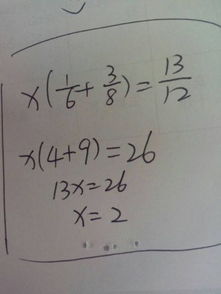 x(1/6+3/8)=13/12
x(4+9)=26
13x=26
x=2